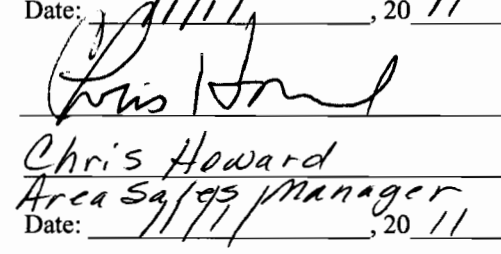 Date: 1/11/11, 20 11
Chris Howard
Chris Howard
Area Sales Manager
Date: 11/1/11, 20 11